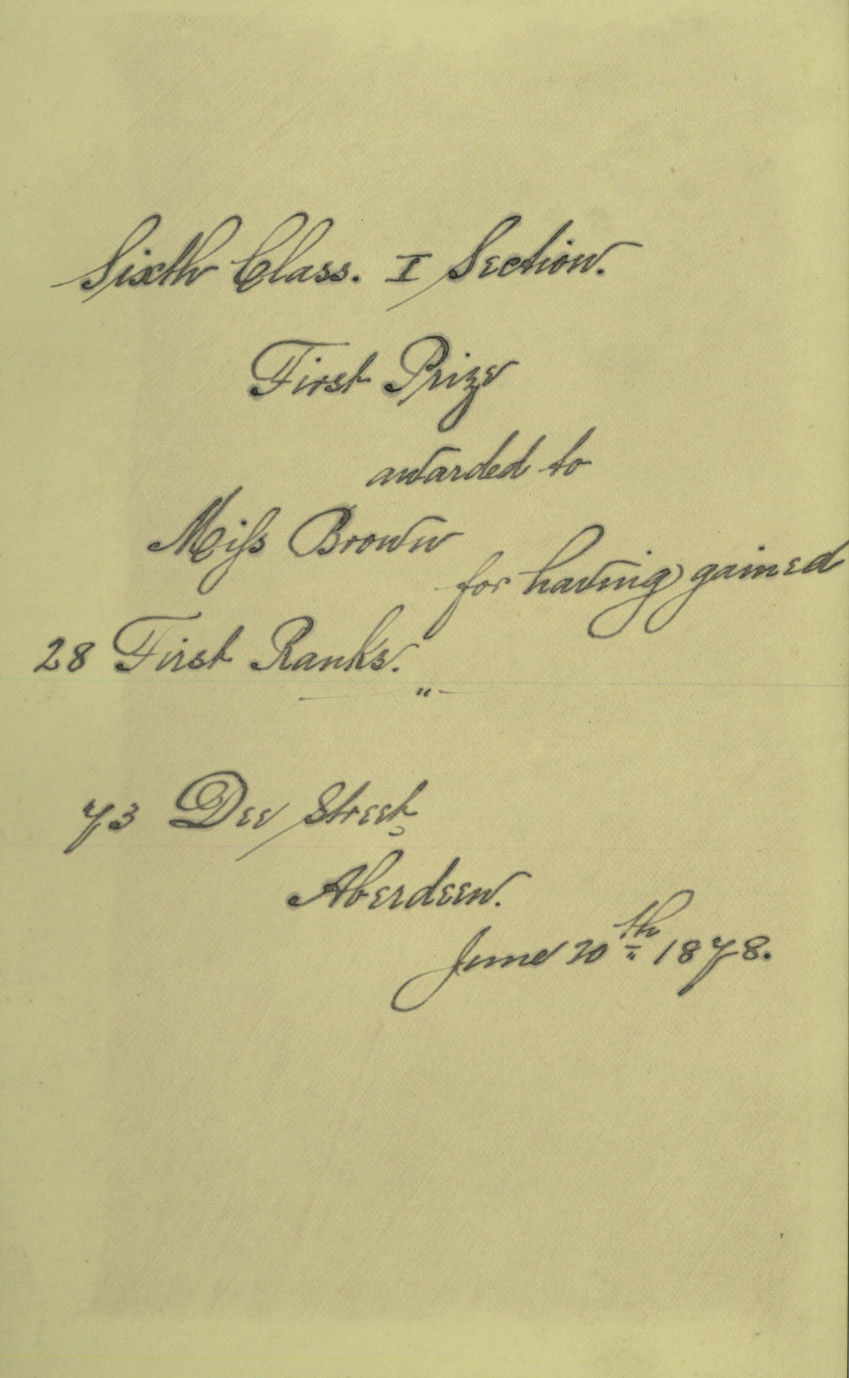 Sixth Class. I Section.
First Prize
awarded to
Miſs Brown
for having gained
28 First Ranks.
73 Dee Street
Aberdeen.
June 20th 1878.